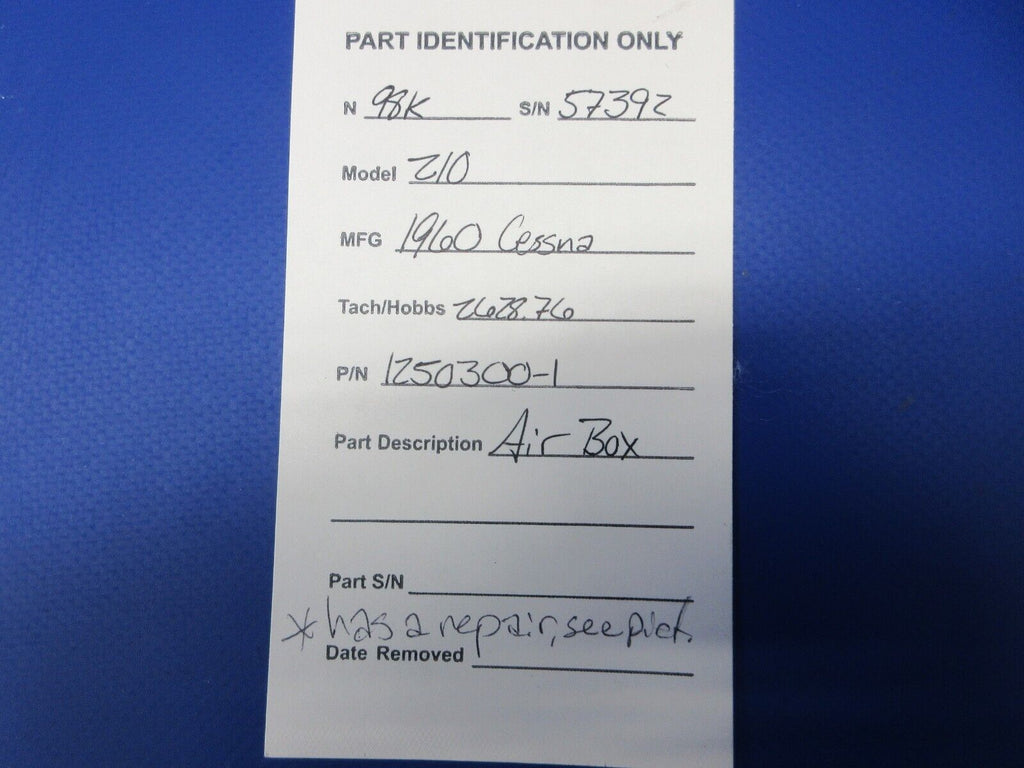 PART IDENTIFICATION ONLY
N 98K S/N 57392
Model 210
MFG 1960 Cessna
Tach/Hobbs 2628.76
P/N 1250300-1
Part Description Air Box
Part S/N
* has a repair, see pict.
Date Removed